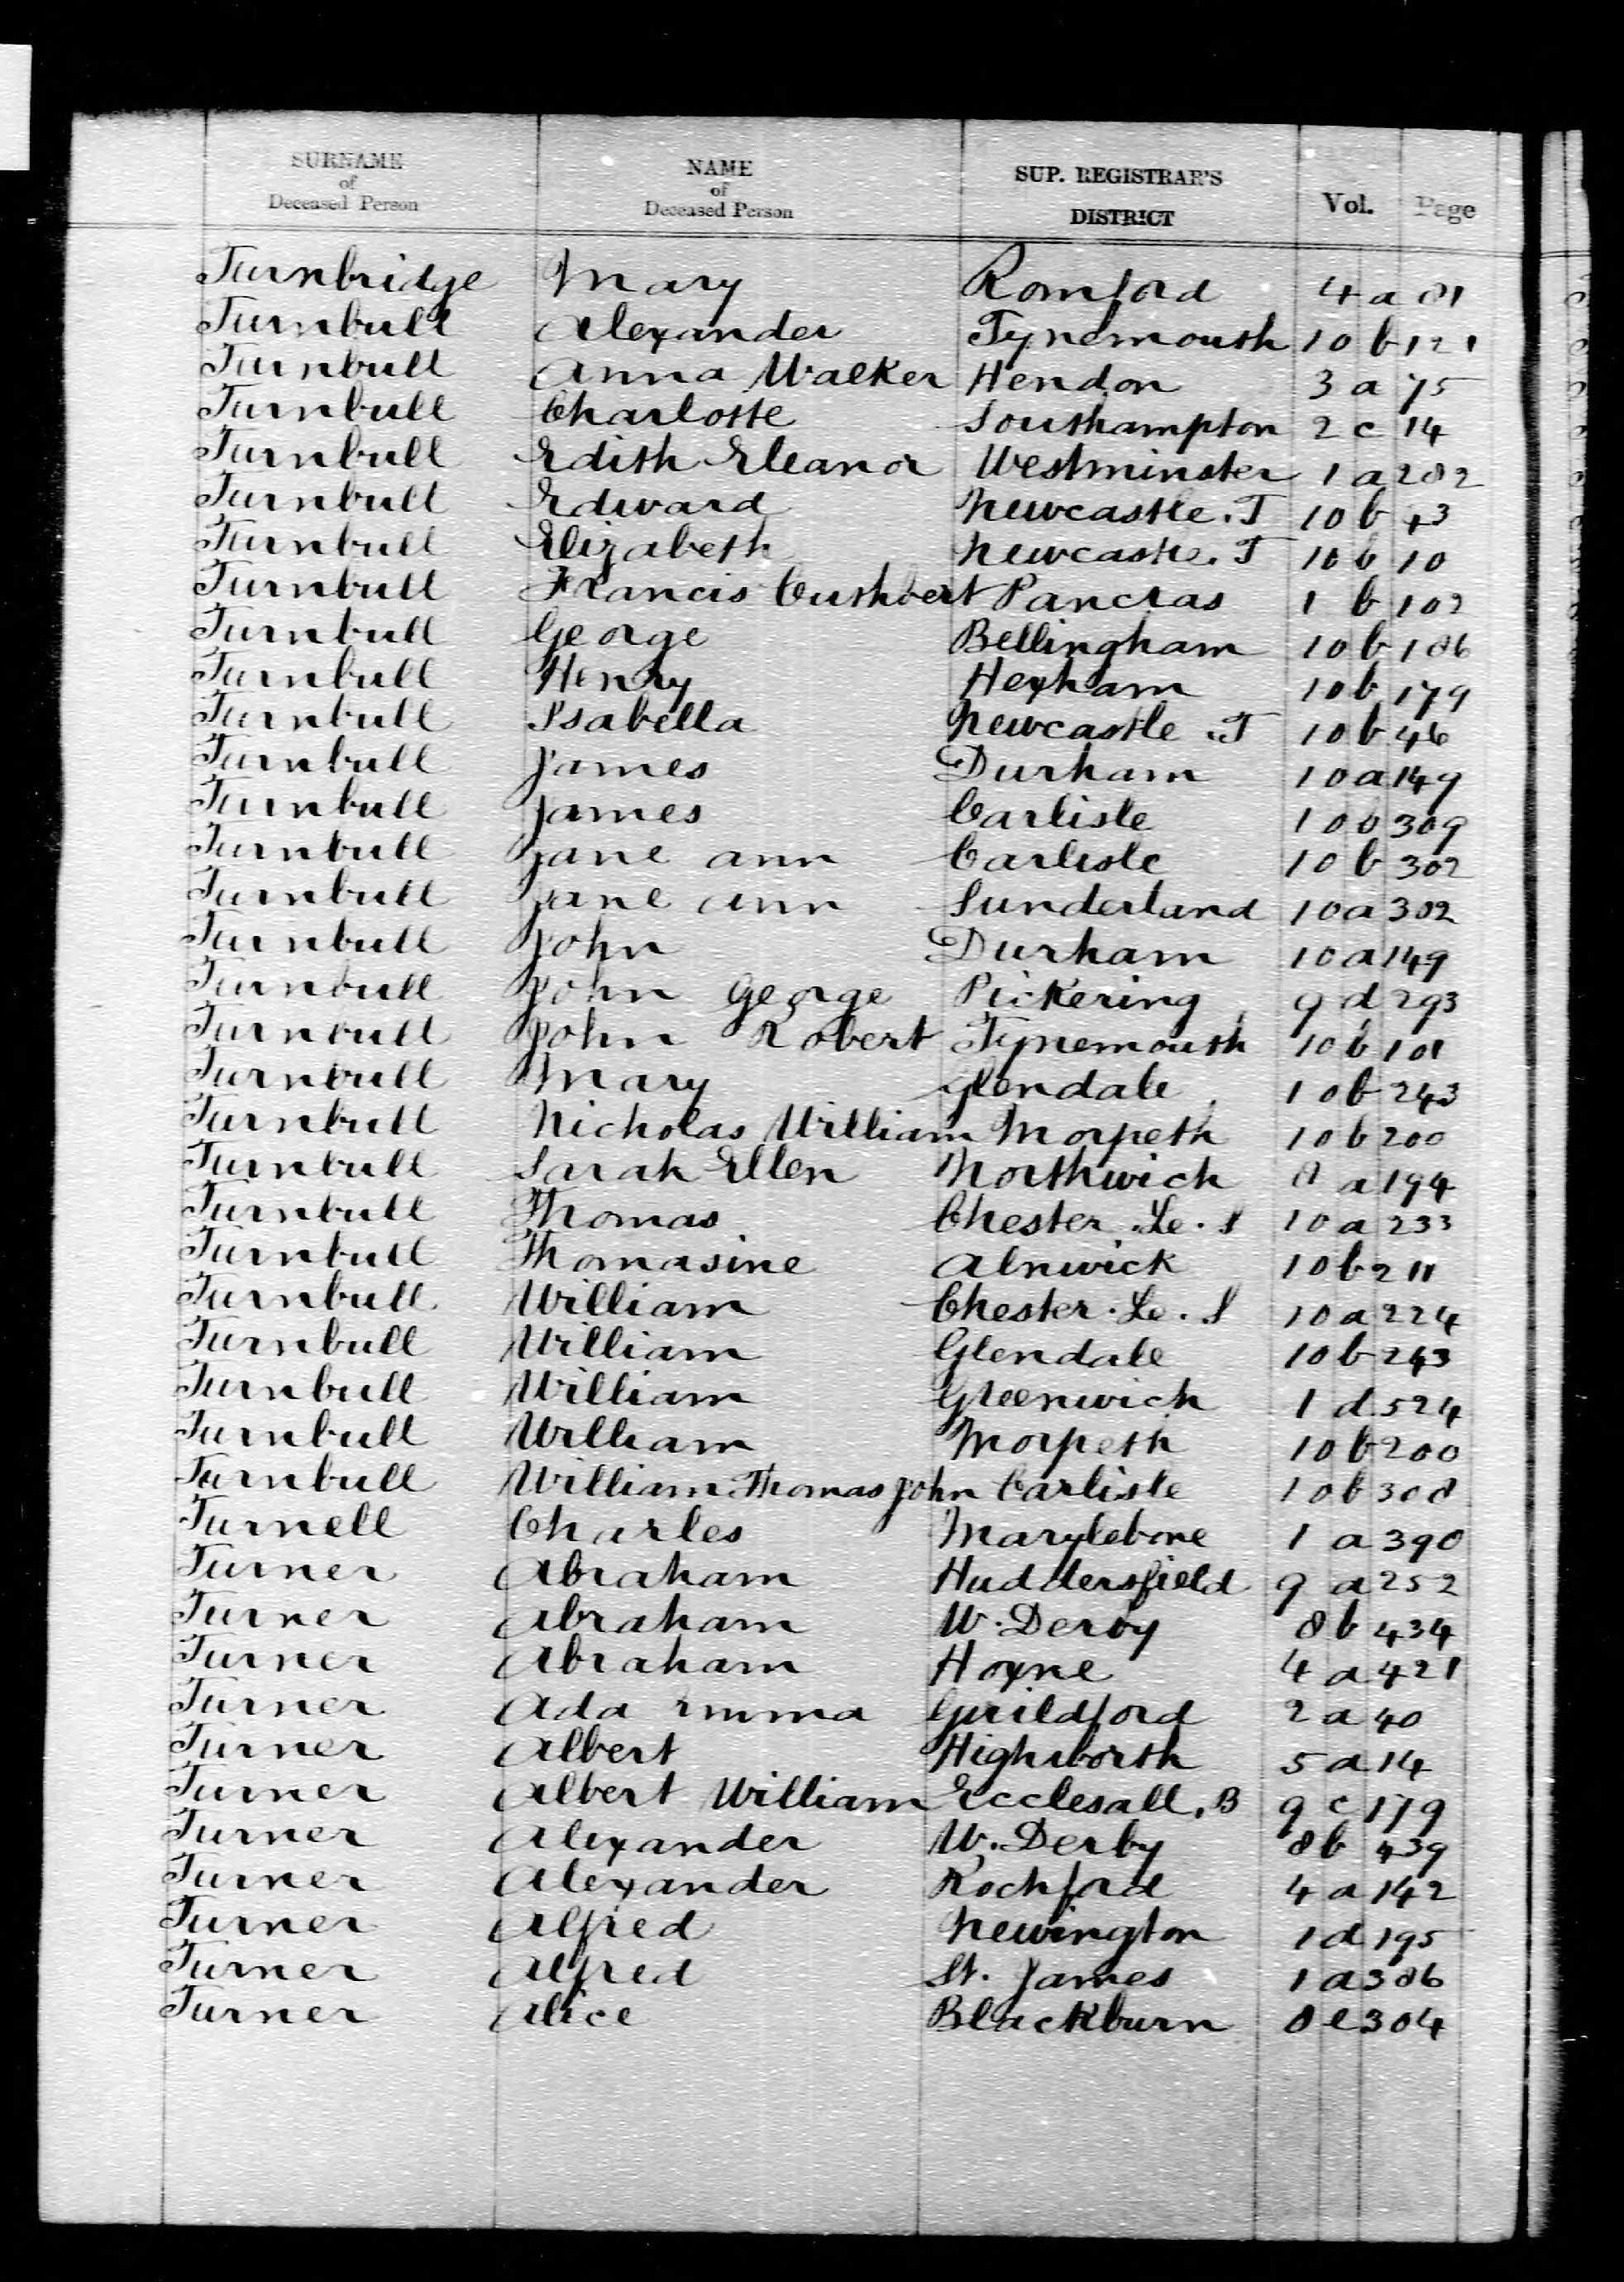 SURNAME of Deceased Person NAME of Deceased Person SUP. REGISTRAR'S DISTRICT Vol. Page
Turnbridge Mary Romford 4 a 81
Turnbull Alexander Tynemouth 10 b 121
Turnbull Anna Walker Hendon 3 a 75
Turnbull Charlotte Southampton 2 c 14
Turnbull Edith Eleanor Westminster 1 a 282
Turnbull Edward Newcastle. T 10 b 43
Turnbull Elizabeth Newcastle. T 10 b 10
Turnbull Francis Cuthbert Pancras 1 b 102
Turnbull George Bellingham 10 b 186
Turnbull Henry Hexham 10 b 179
Turnbull Isabella Newcastle .T 10 b 46
Turnbull James Durham 10 a 149
Turnbull James Carlisle 10 b 309
Turnbull Jane Ann Carlisle 10 b 302
Turnbull Jane Ann Sunderland 10 a 302
Turnbull John Durham 10 a 149
Turnbull John George Pickering 9 d 293
Turnbull John Robert Tynemouth 10 b
Turnbull Mary Glendale 10 b 243
Turnbull Nicholas William Morpeth 10 b 200
Turnbull Sarah Ellen Northwich 8 a 194
Turnbull Thomas Chester. Le. S 10 a 233
Turnbull Thomasine Alnwick 10 b 211
Turnbull William Chester. Le. S 10 a 224
Turnbull William Glendale 10 b 243
Turnbull William Greenwich 1 d 524
Turnbull William Morpeth 10 b 200
Turnbull William Thomas John Carlisle 10 b 308
Turnell Charles Marylebone 1 a 390
Turner Abraham Huddersfield 9 a 252
Turner Abraham W. Derby 8 b 434
Turner Abraham Hoxne 4 a 421
Turner Ada Emma Guildford 2 a 40
Turner Albert Highworth 5 a 14
Turner Albert William Ecclesall. B 9 c 179
Turner Alexander W. Derby 8 b 439
Turner Alexander Rochford 4 a 142
Turner Alfred Newington 1 d 195
Turner Alfred St. James 1 a 386
Turner Alice Blackburn 8 e 304